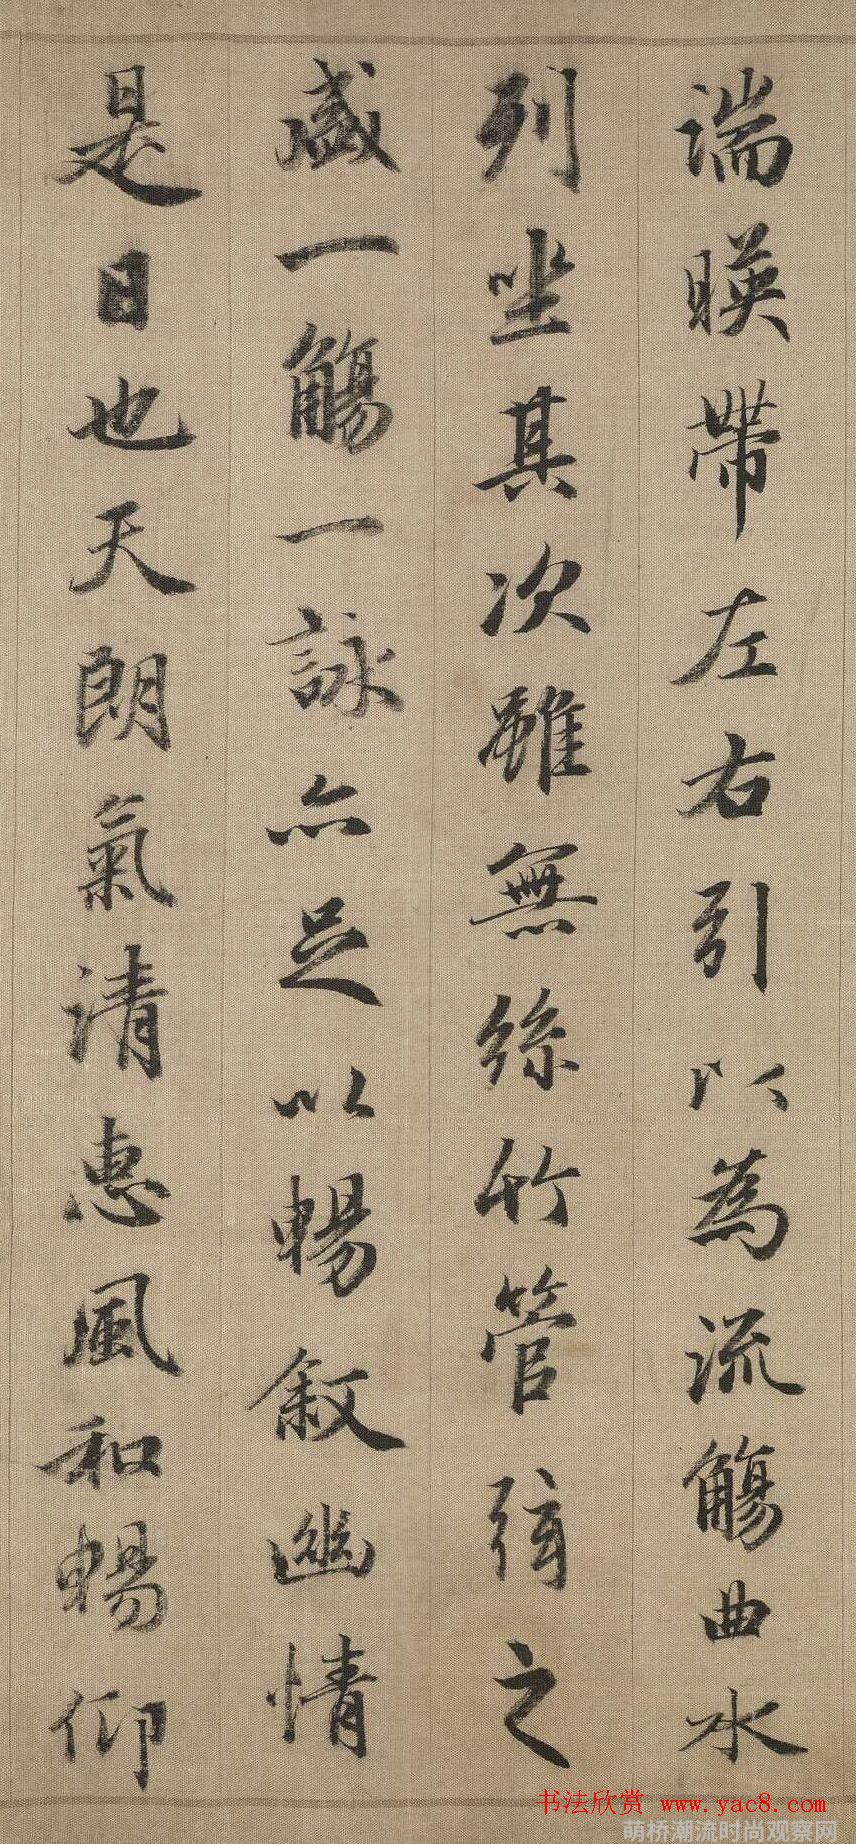 湍暎帶左右引以為流觴曲水
列坐其次雖無絲竹管弦之
盛一觴一詠亦足以暢敘幽情
是日也天朗氣清惠風和暢仰
书法欣赏 www.yac8.com
萌桥潮流时尚观察网